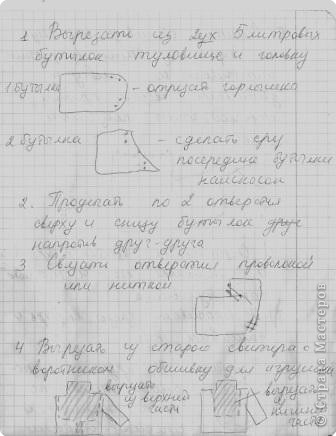 1 Вырезать из 2ух 5 литровых
бутылок туловище и головку
1 бутылка - отрезать горлышко
2 бутылка - сделать
посередине бутылки
наискосок
2. Проделать по 2 отверстия
сверху и снизу бутылок
напротив друг-друга
3 Связать отверстия проволокой
или ниткой
4 Вырезать из старого свитера с
воротником обшивку для игрушки
вырезать
из верхней
части
вырезать
из нижней
части
Страна Мастеров